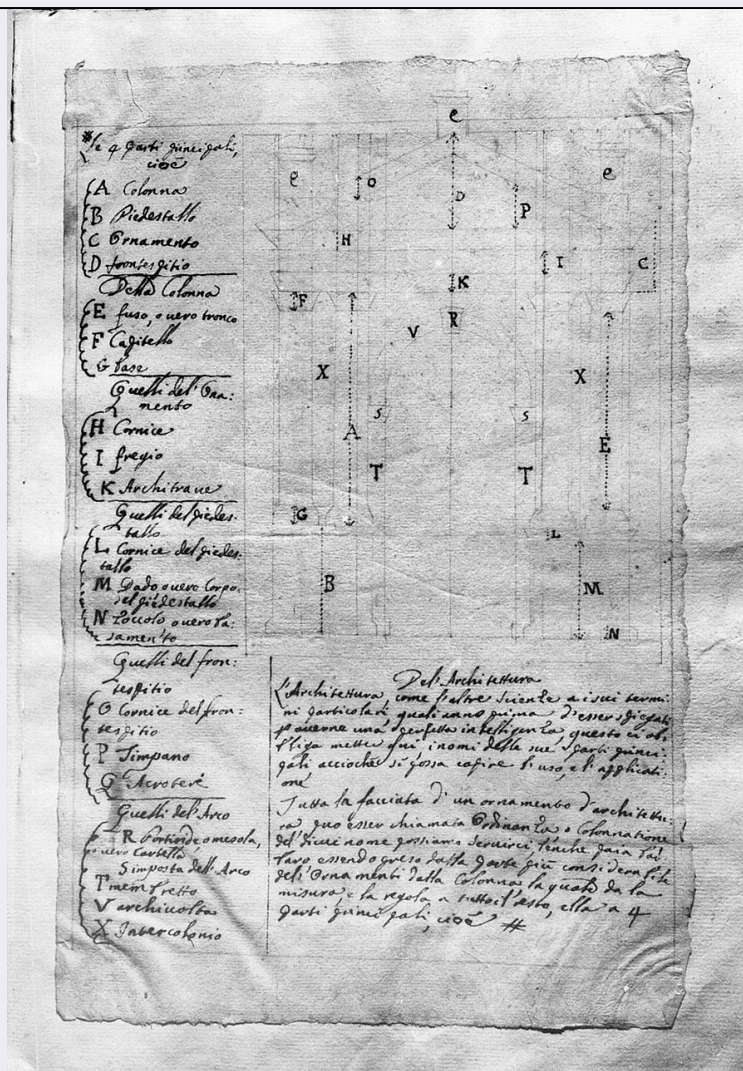 # le 4 parti principali,
cioè
A Colonna
B Piedestallo
C Ornamento
D frontespitio
Della Colonna
E fuso, overo tronco
F Capitello
G base
Quelli del' Orna:
mento
H Cornice
I fregio
K Architraue
Quelli del piedes:
tallo
L Cornice del piedes:
tallo
M Dado ouero Corpo
del piedestallo
N Zoccolo ouero ba:
samento
Quelli del fron:
tespitio
O Cornice del fron:
tespitio
P Timpano
Q Acroterè
Quelli del' Arco
R
ouero Cartella
S imposta dell' Arco
T membretto
V archivolta
X Intercolonio
e
e
O
D
P
e
H
I
C
K
F
R
V
X
X
S
S
A
E
T
T
G
L
B
M
N
Del' Architettura
L'Architettura come l'altre scienze a i suoi termi:
ni particolari quali anno prima d'esser spiegati
p auerne una perfetta intelligenza questo ci ob:
bliga metter qui, i nomi delle sue parti princi:
pali accioche si possa capire l'uso, e l'applicati:
one
Tutta la facciata d'un ornamento d'architettu:
ra puo esser chiamata Ordinanza o Colonnatione
del' dicui nome possiamo seruirci benche paia bar
baro essendo preso dalla parte più considerabile
del' Ornamento dalla Colonna la quale da la
misura, e la regola a tutto il resto, ella a 4
parti principali, cioè #